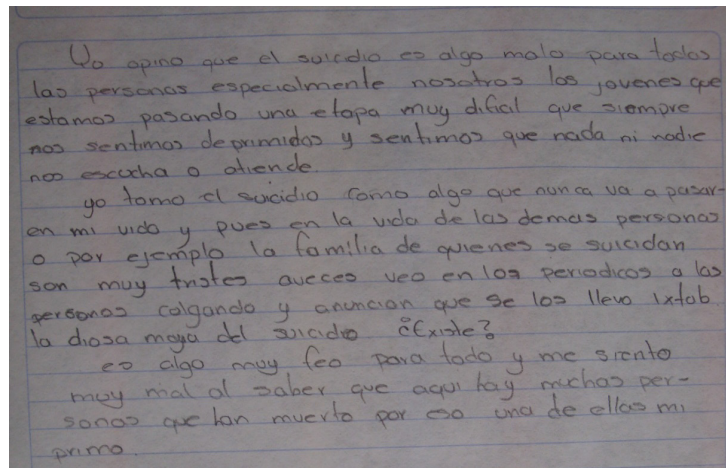 Yo opino que el suicidio es algo malo para todas
las personas especialmente nosotros los jovenes que
estamos pasando una etapa muy dificil que siempre
nos sentimos deprimidos y sentimos que nada ni nadie
nos escucha o atiende.
yo tomo el suicidio como algo que nunca va a pasar-
en mi vida y pues en la vida de las demas personas
o por ejemplo la familia de quienes se suicidan
son muy tristes aveces veo en los periodicos a las
personas colgando y anuncian que se los llevo Ixtab
la diosa maya del suicidio ¿Existe?
es algo muy feo para todo y me siento
muy mal al saber que aqui hay muchas per-
sonas que han muerto por eso una de ellas mi
primo.